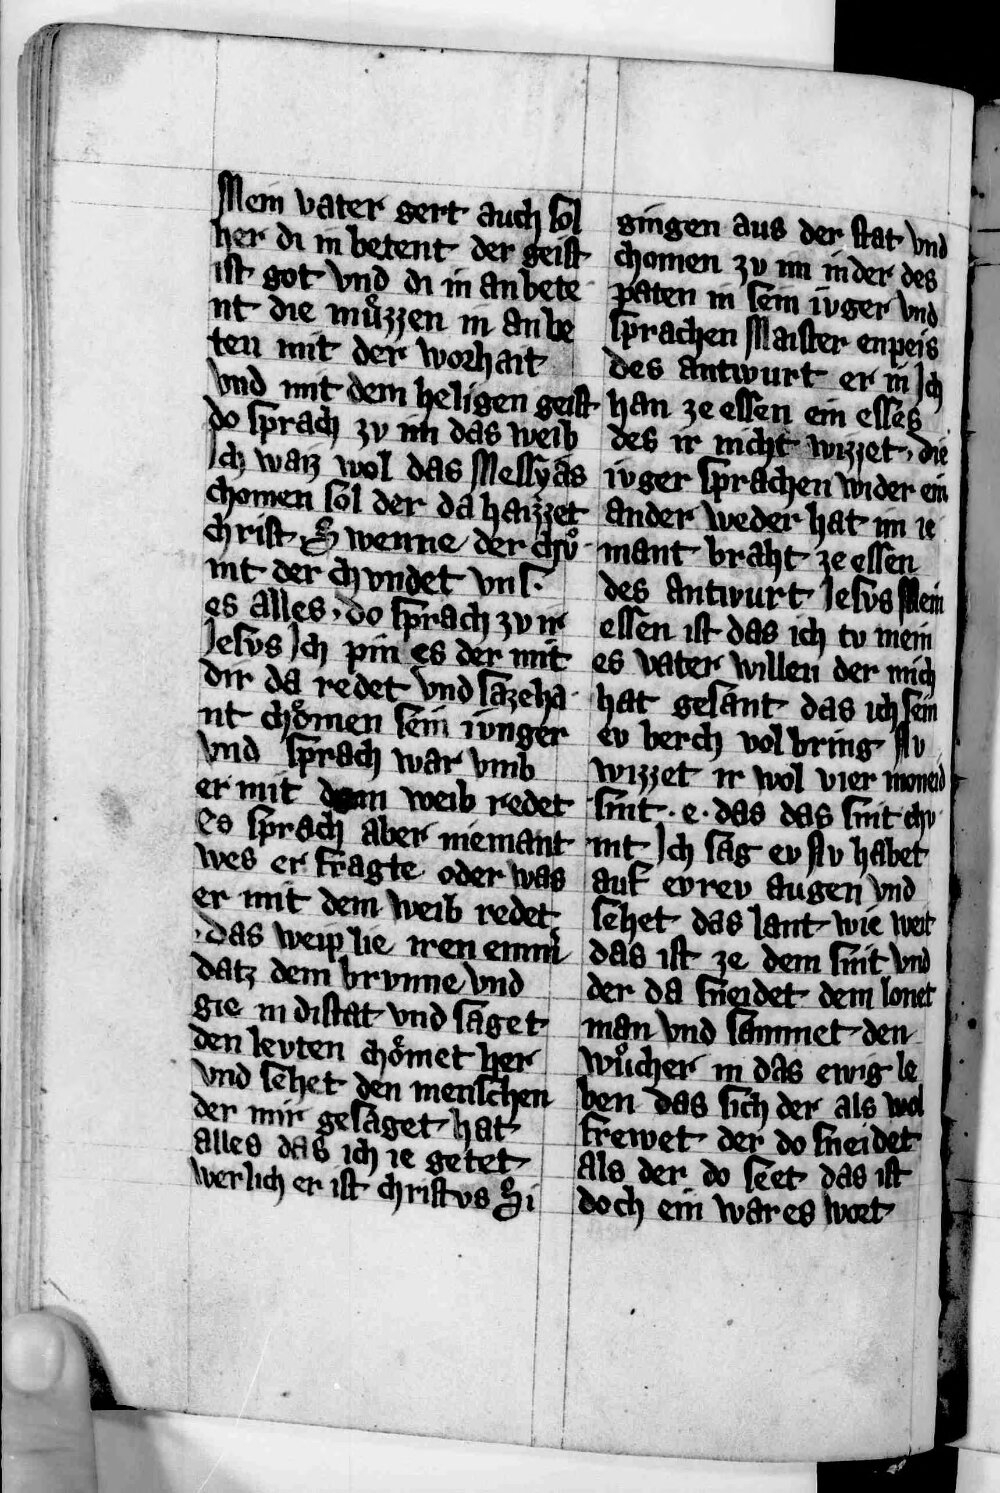 Mein vater gert auch sol
her di in betent der geist
ist got vnd di in anbete
nt die muͦzzen in anbe
ten mit der worhait
vnd mit dem heligen geist
do sprach zv im das weib
Ich waiz wol das Messyas
chomen sol der da haizzet
christ. So wenne der chvͦ
mt der chvndet vns.
es alles. do sprach zv ir
Jesvs Ich pin es der mit
dir da redet vnd sazeha
nt choͤmen sein ivnger
vnd sprach war vmb
er mit dem weib redet
es sprach aber niemant
wes er fragte oder was
er mit dem weib redet
.das weip lie iren emmͤ
datz dem brvnne vnd
gie in di stat vnd saget
den levten choͤmet her
vnd sehet den menschen
der mir gesaget hat
alles das ich ie getet
werlich er ist christvs Si
gingen aus der stat vnd
chomen zv im in der des
paten in sein ivger vnd
sprachen Maister enpeis
des antwurt er in Ich
han ze essen ein esses
des ir nicht wizzet. die
ivger sprachen wider ein
ander weder hat im ie
mant braht ze essen
des antwurt Jesvs Mein
essen ist das ich tv mein
es vater willen der mich
hat gesant das ich sein
ev berch volbring Nv
wizzet ir wol vier moneid
sint. e. das das snit chv
mt Ich sag ev Nv habet
auf evrev augen vnd
sehet das lant wie weit
das ist ze dem snit vnd
der da sneidet dem lonet
man vnd sammet den
wuͦcher in das ewig le
ben das sich der als wol
frewet der do sneidet
als der do seet das ist
doch ein wares wort